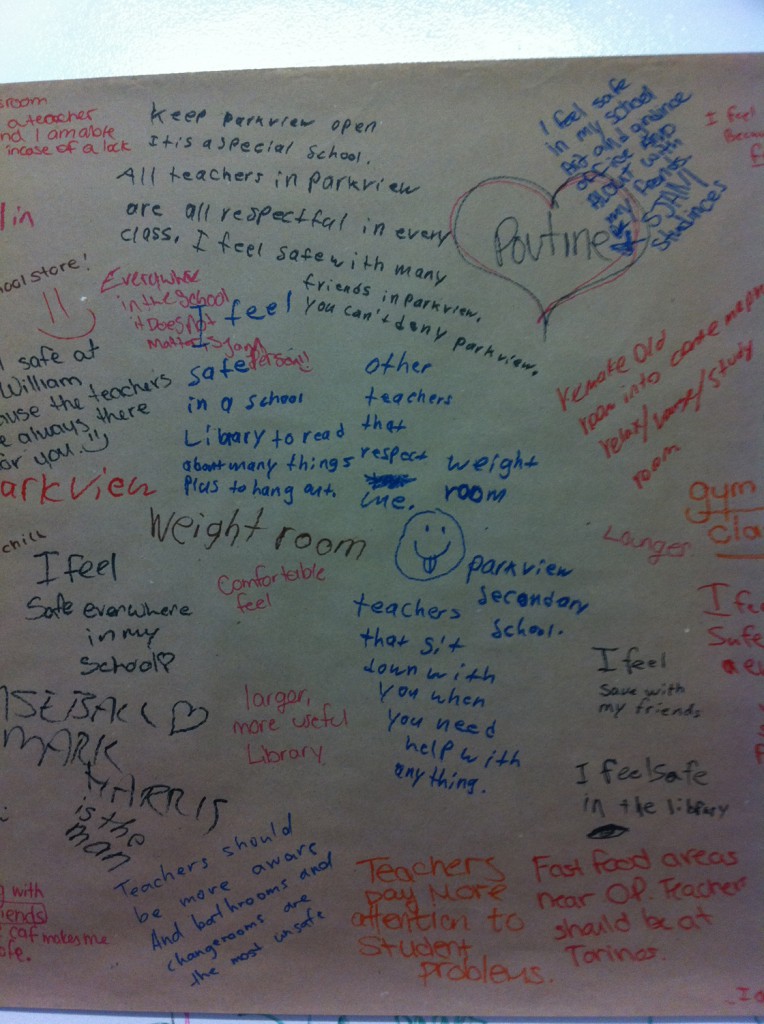 a teacher
nd I am able
incase of a lock
Keep parkview open
It is a special school.
All teachers in parkview
are all respectful in every
class. I feel safe with many
friends in parkview.
you can't deny parkview.
I feel safe
in my school
office
about with
my friends
SJAM
Poutine
I feel
Becau
ool store!
Everywhere
in the School
it Does Not
Matter SJam
Person!!
safe at
William
ause the teachers
e always there
or you.
I feel
safe
in a school
Library to read
about many things
plus to hang out.
other
teachers
that
respect
me.
weight
room
Remake Old
room into
relax/ /Study
room
arkview
chill
Weight room
gym
cla
Lounger
I feel
Safe everwhere
in my
school
Comfortable
feel
parkview
Secondary
School.
teachers
that sit
down with
you when
you need
help with
anything.
I fee
Safe
I feel
save with
my friends
ASEBALL
MARK
HARRIS
is the
man
larger,
more useful
Library
I feel safe
in the library
Teachers should
be more aware
And bathrooms and
changerooms are
the most unsafe
Teachers
pay More
attention to
Student
problems.
Fast food areas
near OP. Teacher
should be at
Torinos.
with
iends
caf makes me
afe.